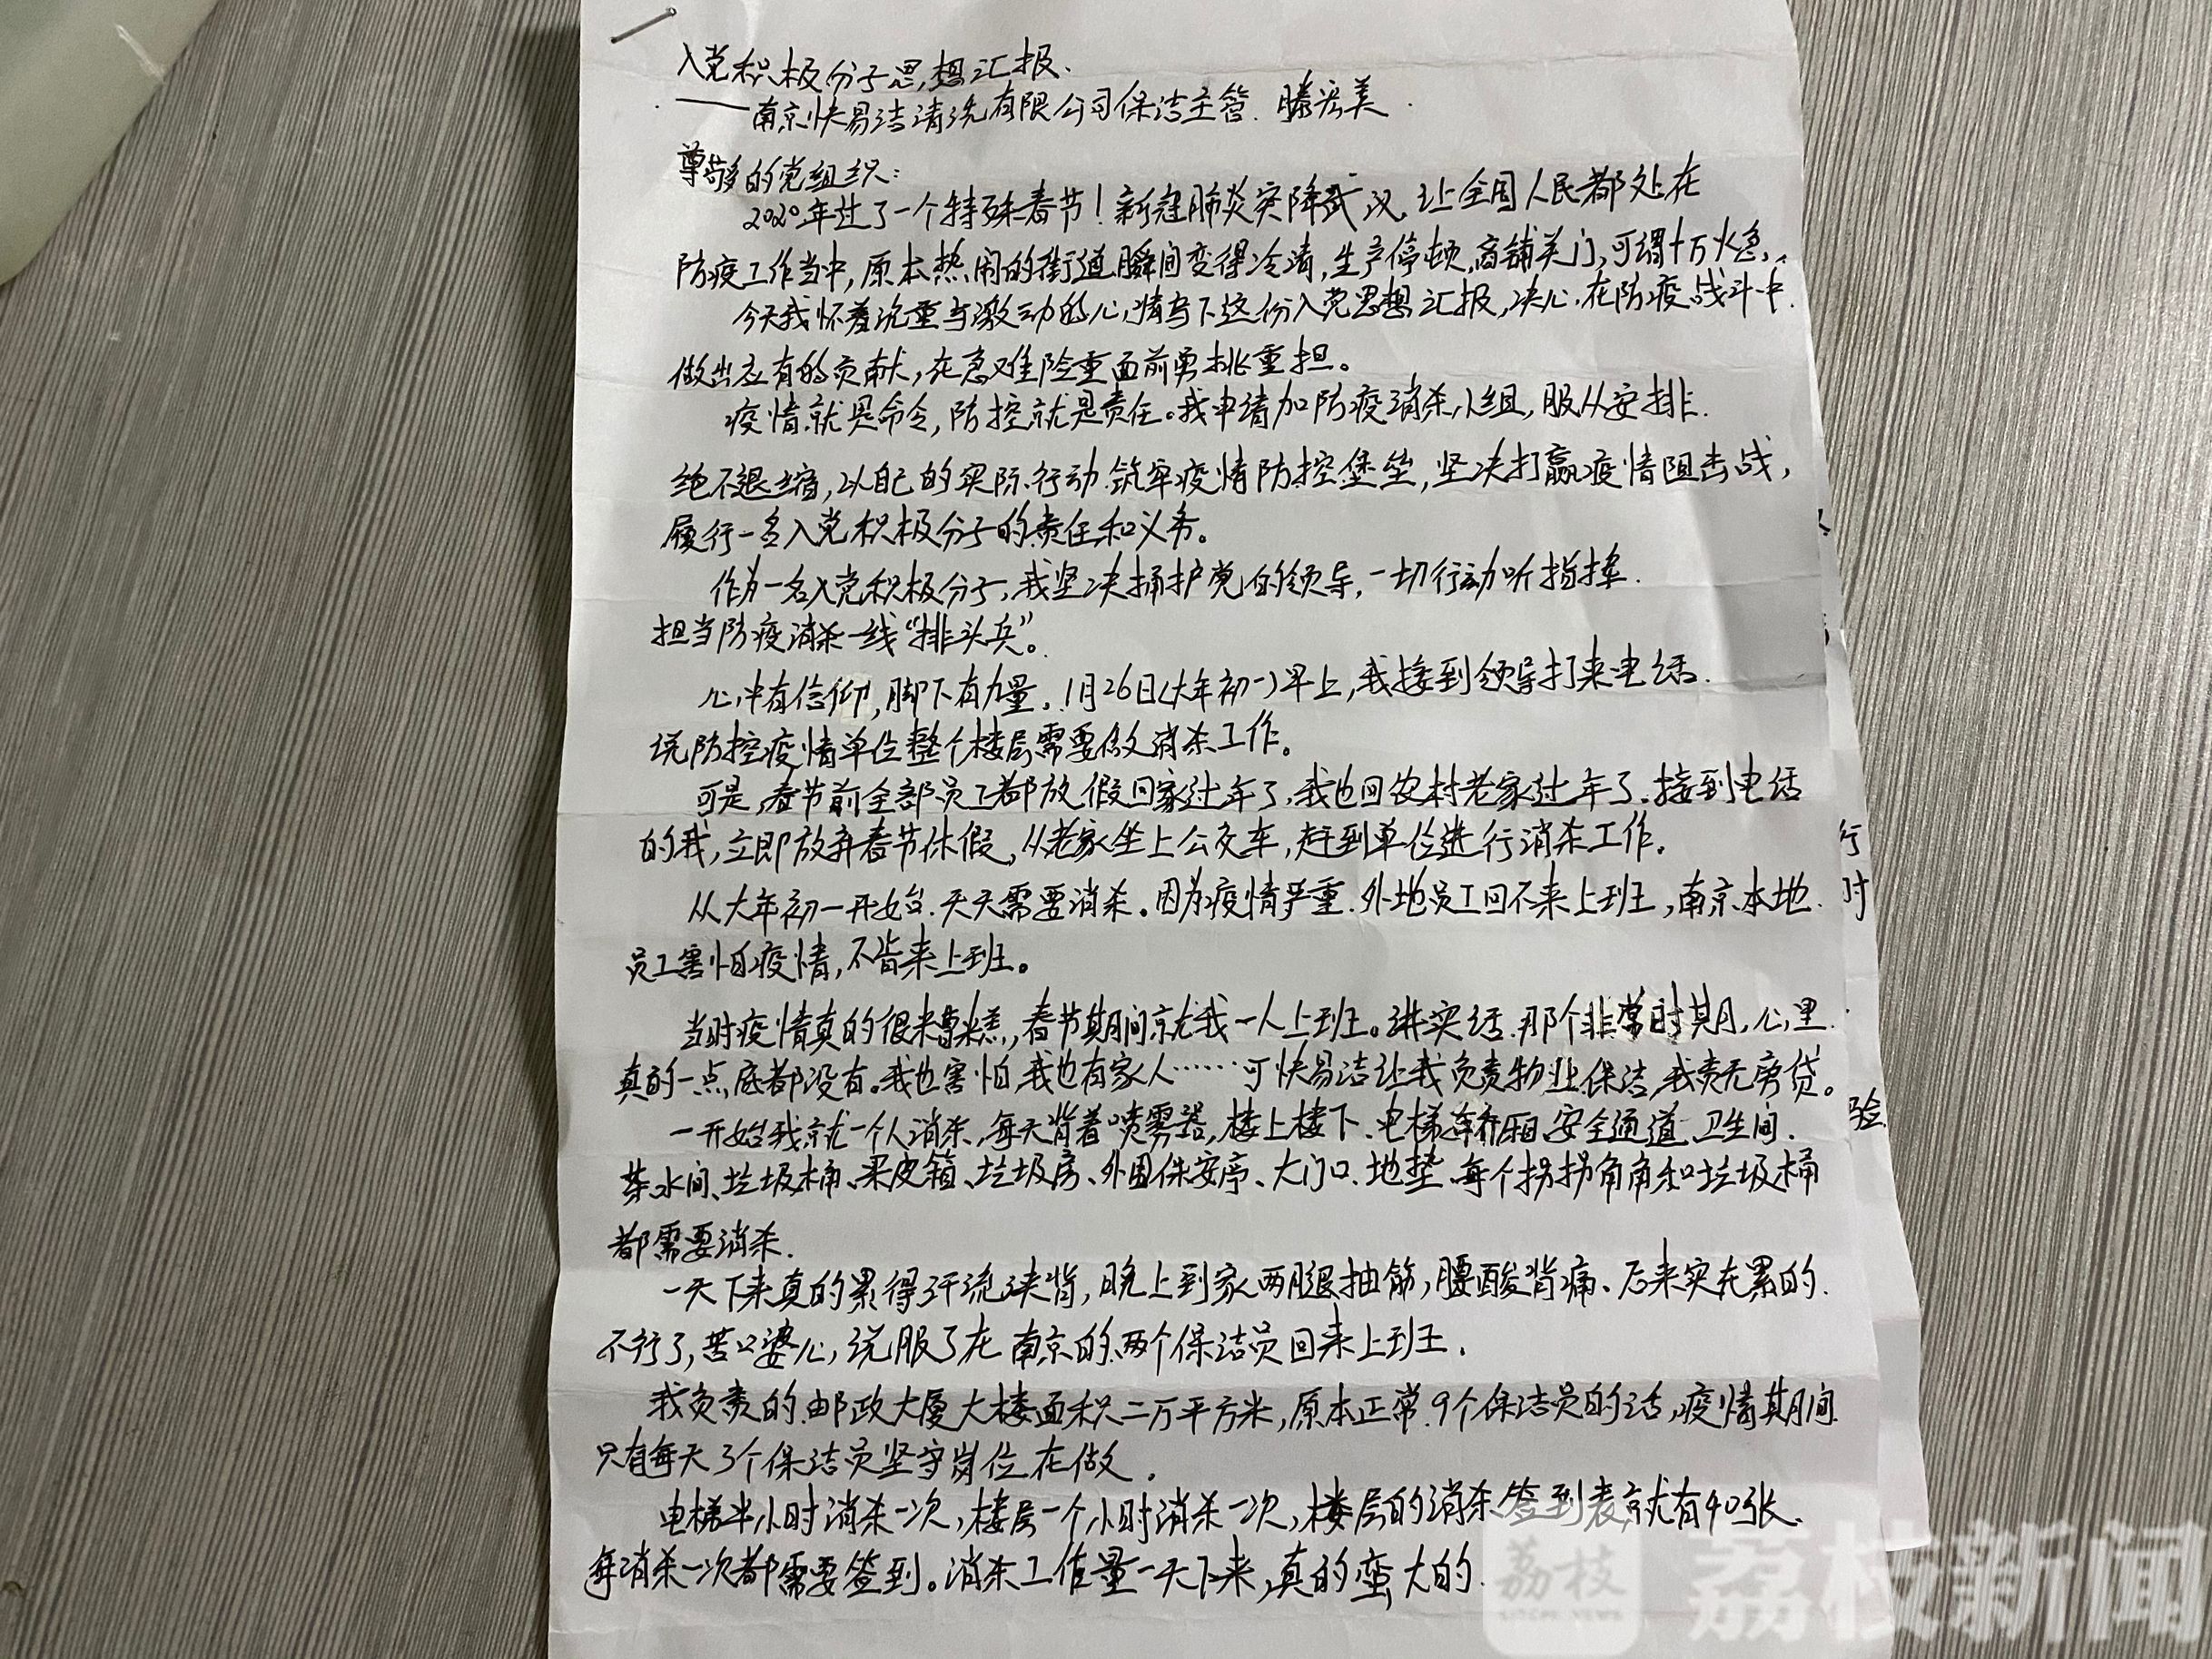 入党积极分子思想汇报.
——南京快易洁清洗有限公司保洁主管.滕美
尊敬的党组织:
2020年过了一个特殊春节!新冠肺炎突降武汉,让全国人民都处在
防疫工作当中,原本热闹的街道瞬间变得冷清,生产停顿,商铺关门,可谓十万火急,
今天我怀着沉重与激动的心情写下这份入党思想汇报,决心在防疫战斗中
做出应有的贡献,在急难险重面前勇挑重担。
疫情就是命令,防控就是责任。我申请加防疫消杀小组,服从安排.
绝不退缩,以自己的实际行动筑牢疫情防控堡垒,坚决打赢疫情阻击战,
履行一名入党积极分子的责任和义务。
作为一名入党积极分子,我坚决拥护党的领导,一切行动听指挥.
担当防疫消杀一线“排头兵”。
心中有信仰,脚下有力量。1月26日(大年初一)早上,我接到领导打来电话.
说防控疫情单位整个楼层需要做消杀工作。
可是,春节前全部员工都放假回家过年了,我也回农村老家过年了.接到电话
的我,立即放弃春节休假,从老家坐上公交车,赶到单位进行消杀工作。
从大年初一开始.天天需要消杀。因为疫情严重.外地员工回不来上班,南京本地
员工害怕疫情,不肯来上班。
当时疫情真的很糟糕,春节期间就我一人上班。讲实话.那个非常时期,心里
真的一点底都没有。我也害怕,我也有家人……可快易洁让我负责物业保洁,我责无旁贷。
一开始我就一个人消杀,每天背着喷雾器,楼上楼下、电梯轿厢、安全通道、卫生间、
茶水间、垃圾桶、果皮箱、垃圾房、外围保安亭、大门口、地垫、每个拐拐角角和垃圾桶
都需要消杀.
一天下来真的累得汗流浃背,晚上到家两腿抽筋,腰酸背痛、后来实在累的.
不行了,苦口婆心,说服了在南京的两个保洁员回来上班.
我负责的邮政大厦大楼面积二万平方米,原本正常9个保洁员的活,疫情期间
只有每天3个保洁员坚守岗位在做.
电梯半小时消杀一次,楼层一个小时消杀一次,楼层的消杀签到表就有40张、
每消杀一次都需要签到。消杀工作量一天下来,真的蛮大的.
行
时
验
荔枝
LITCHI NEWS
荔枝新闻